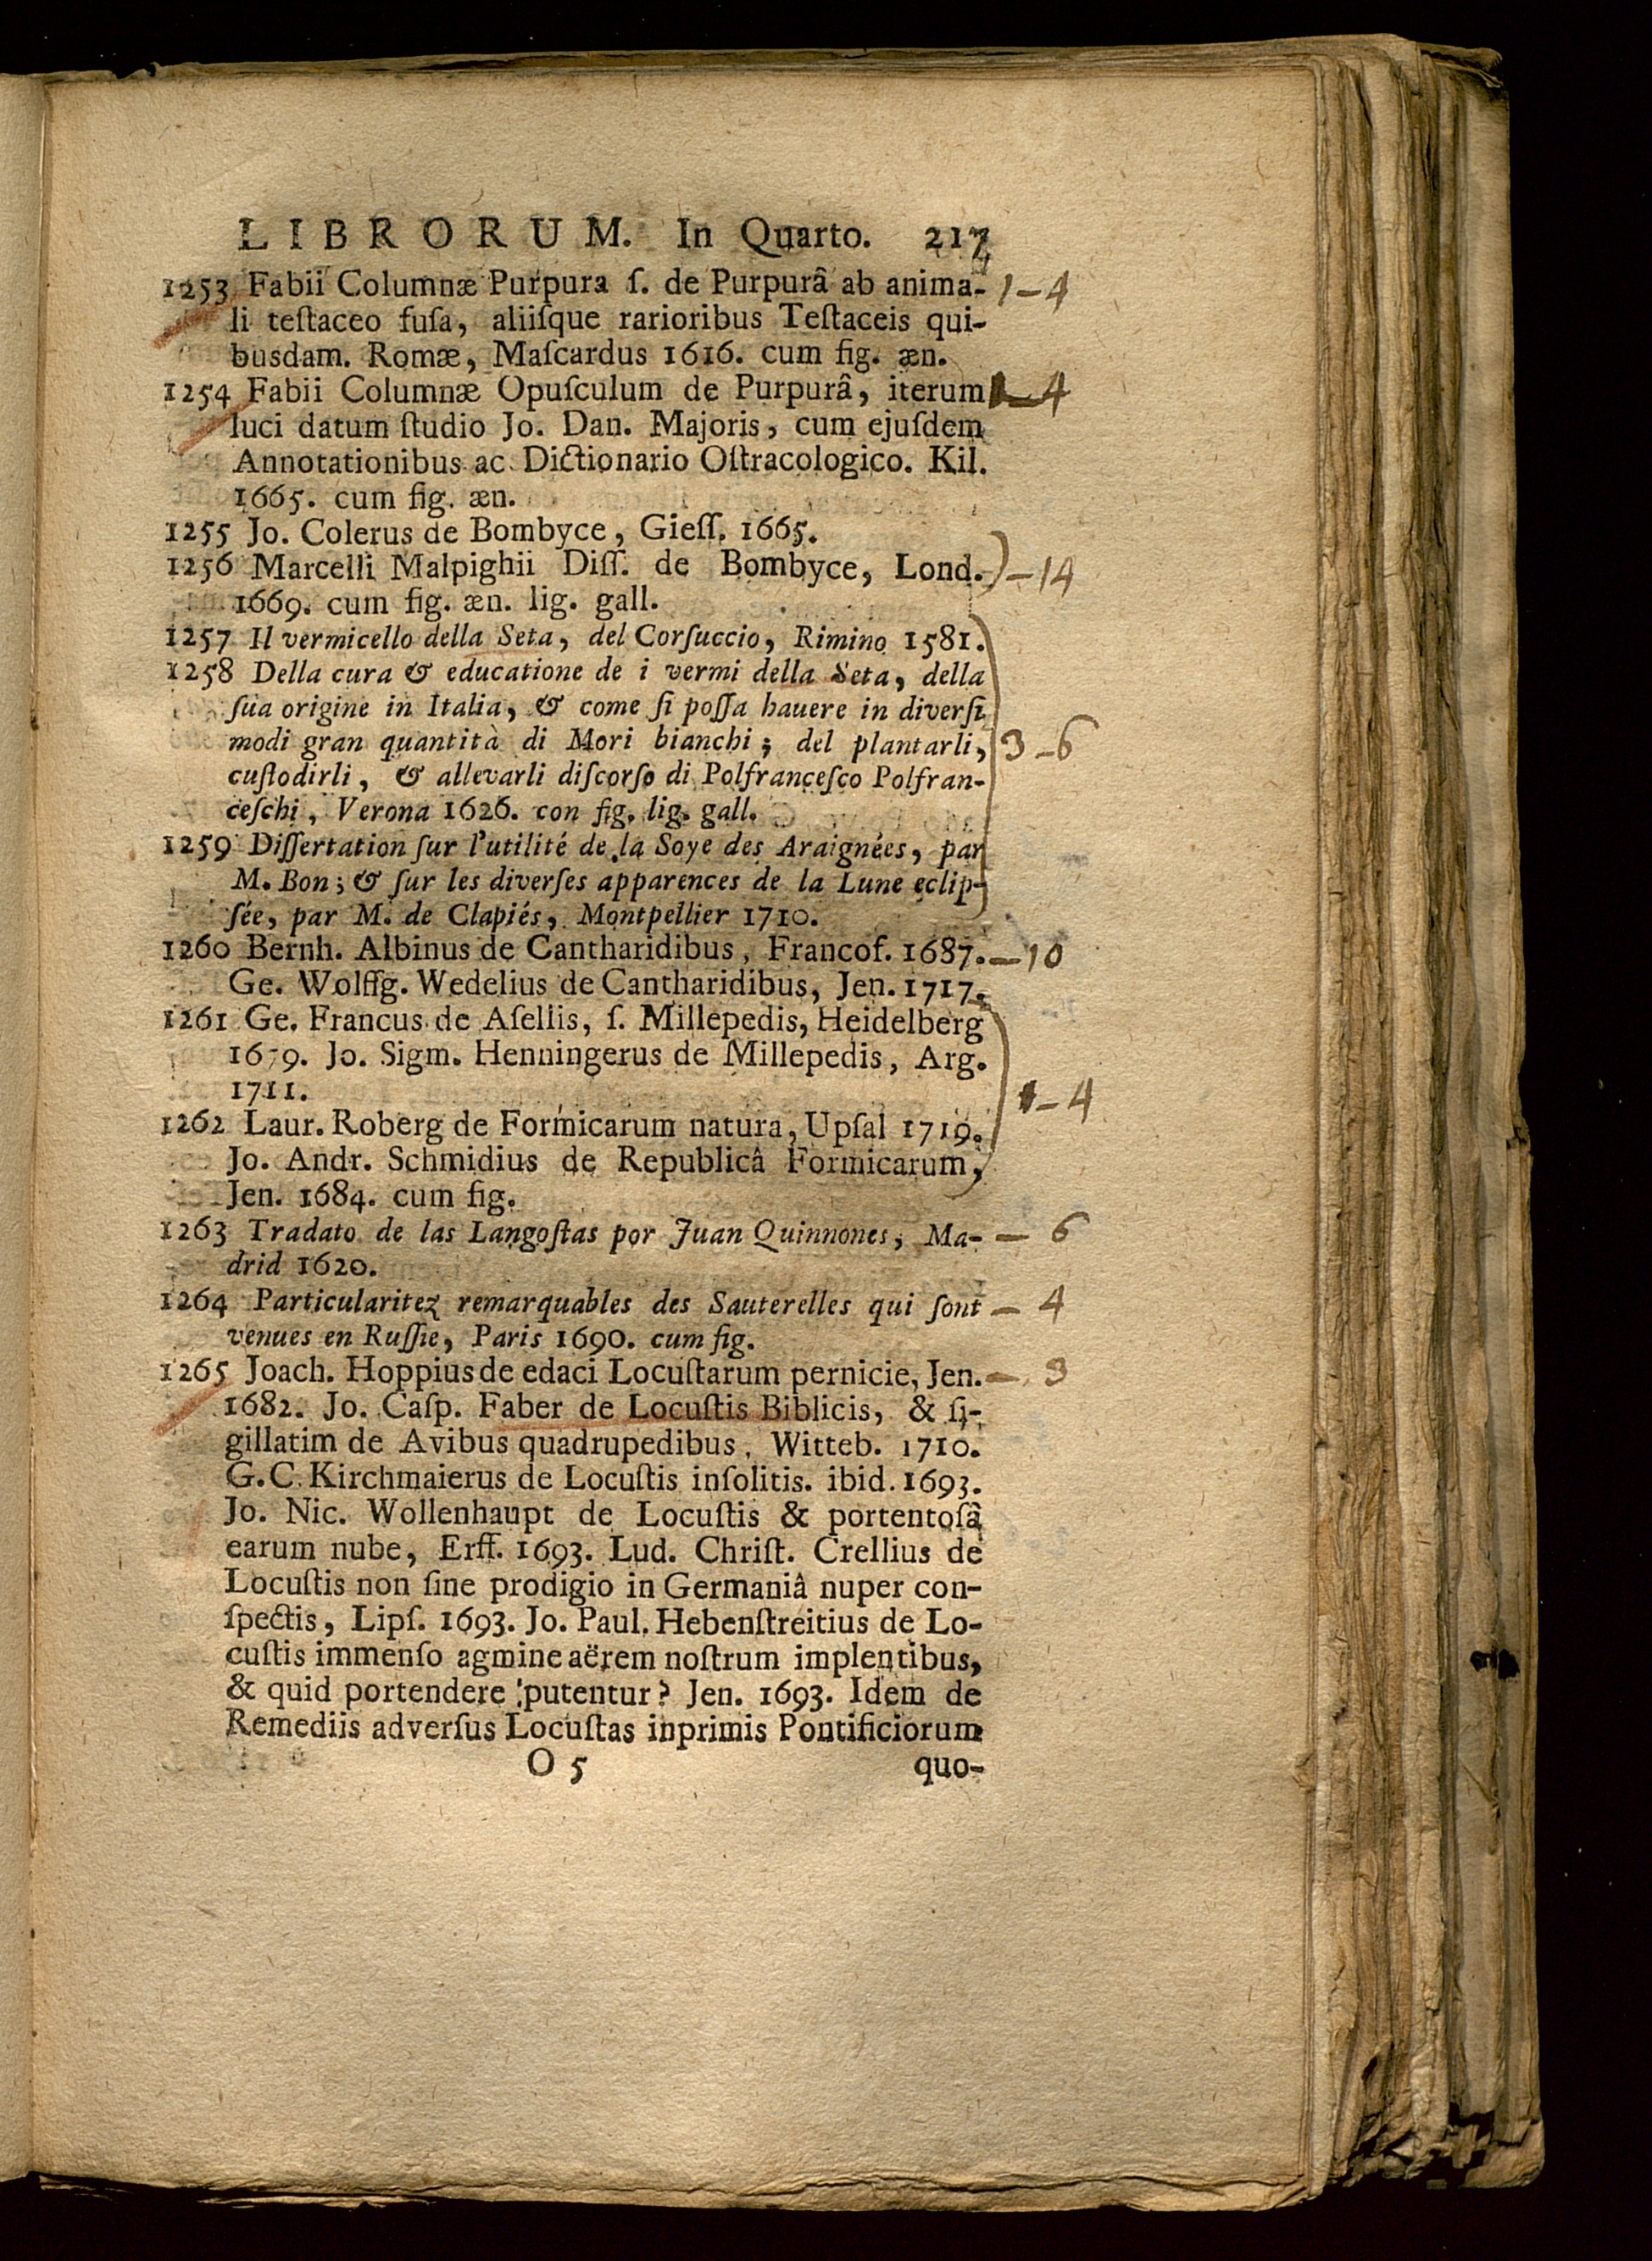 LIBRORUM. In Quarto. 217
1253 Fabii Columnæ Purpura ſ. de Purpurâ ab anima- 1-4
li teſtaceo fuſa, aliiſque rarioribus Teſtaceis qui-
busdam. Romæ, Maſcardus 1616. cum fig. æn.
1254 Fabii Columnæ Opuſculum de Purpurâ, iterum 1-4
luci datum ſtudio Jo. Dan. Majoris, cum ejuſdem
Annotationibus ac Dictionario Oſtracologico. Kil.
1665. cum fig. æn.
1255 Jo. Colerus de Bombyce, Gieſſ. 1665.
1256 Marcelli Malpighii Diſſ. de Bombyce, Lond. -14
1669. cum fig. æn. lig. gall.
1257 Il vermicello della Seta, del Corſuccio, Rimino 1581.
1258 Della cura & educatione de i vermi della Seta, della
ſua origine in Italia, & come ſi poſſa hauere in diverſi
modi gran quantità di Mori bianchi; del plantarli, 3-6
cuſtodirli, & allevarli diſcorſo di Polfranceſco Polfran-
ceſchi, Verona 1626. con fig. lig. gall.
1259 Diſſertation ſur l'utilité de la Soye des Araignées, par
M. Bon; & ſur les diverſes apparences de la Lune eclip-
ſée, par M. de Clapiés, Montpellier 1710.
1260 Bernh. Albinus de Cantharidibus, Francof. 1687. -10
Ge. Wolffg. Wedelius de Cantharidibus, Jen. 1717.
1261 Ge. Francus de Aſellis, ſ. Millepedis, Heidelberg
1679. Jo. Sigm. Henningerus de Millepedis, Arg.
1711. 1-4
1262 Laur. Roberg de Formicarum natura, Upſal 1719.
Jo. Andr. Schmidius de Republicâ Formicarum,
Jen. 1684. cum fig.
1263 Tradato de las Langoſtas por Juan Quinnones, Ma- - 6
drid 1620.
1264 Particularitez remarquables des Sauterelles qui ſont - 4
venues en Ruſſie, Paris 1690. cum fig.
1265 Joach. Hoppius de edaci Locuſtarum pernicie, Jen. - 3
1682. Jo. Caſp. Faber de Locuſtis Biblicis, & ſi-
gillatim de Avibus quadrupedibus, Witteb. 1710.
G. C. Kirchmaierus de Locuſtis inſolitis. ibid. 1693.
Jo. Nic. Wollenhaupt de Locuſtis & portentoſâ
earum nube, Erff. 1693. Lud. Chriſt. Crellius de
Locuſtis non ſine prodigio in Germaniâ nuper con-
ſpectis, Lipſ. 1693. Jo. Paul. Hebenſtreitius de Lo-
cuſtis immenſo agmine aërem noſtrum implentibus,
& quid portendere putentur? Jen. 1693. Idem de
Remediis adverſus Locuſtas inprimis Pontificiorum
O 5 quo-